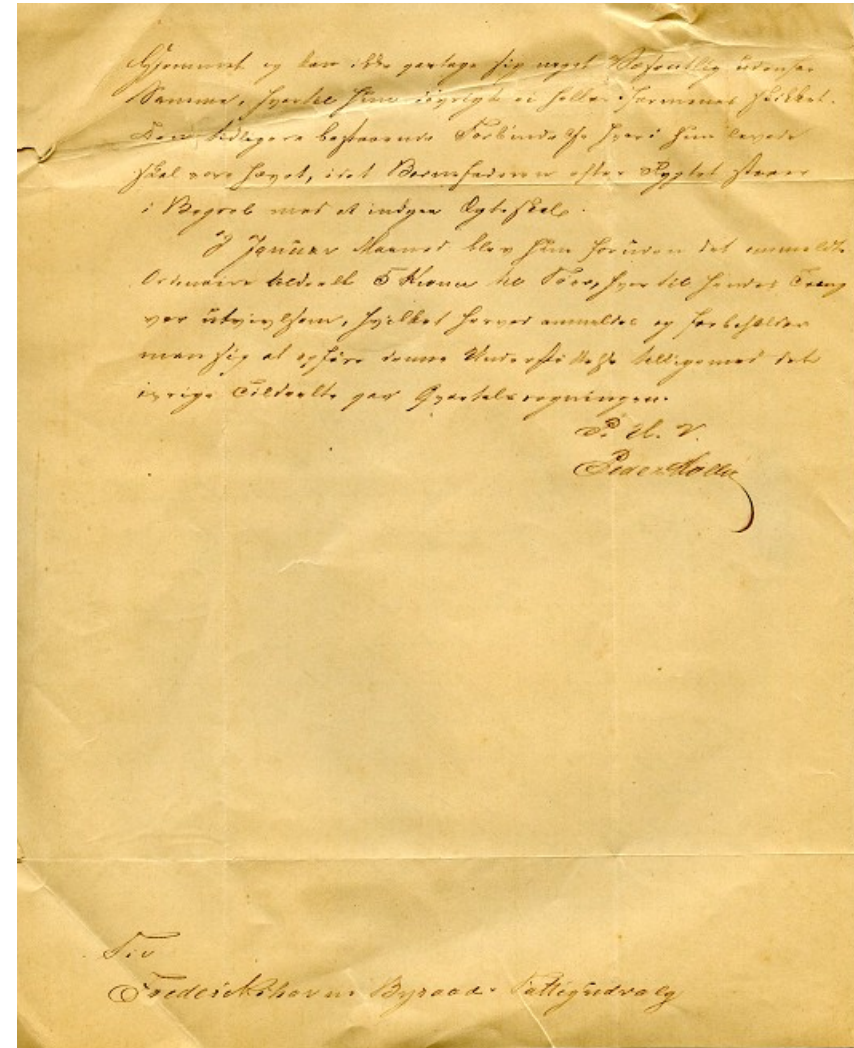 Hjemmet og kan ikke paatage sig noget Væsentlig udenfor
Samme, hvortil hun iøvrigt ei heller formenes skikket.
Den tidligere bestaaende Forbindelse hvori hun levede
skal være hævet, idet Barnefaderen efter Rygtet staaer
i Begreb med at indgaa Ægteskab.
I Januar Maaned blev hun foruden det anmeldte
Ordinaire tildeelt 5 Kroner til hvortil hendes Trang
var utvivlsom, hvilket herved anmeldes og forbeholder
man sig at opføre denne Understøttelse tilligemed det
øvrige Tildeelte paa Qvartalsregningen.
P. U. V.
Peder
Til
Frederikshavns Byraads Fattigudvalg